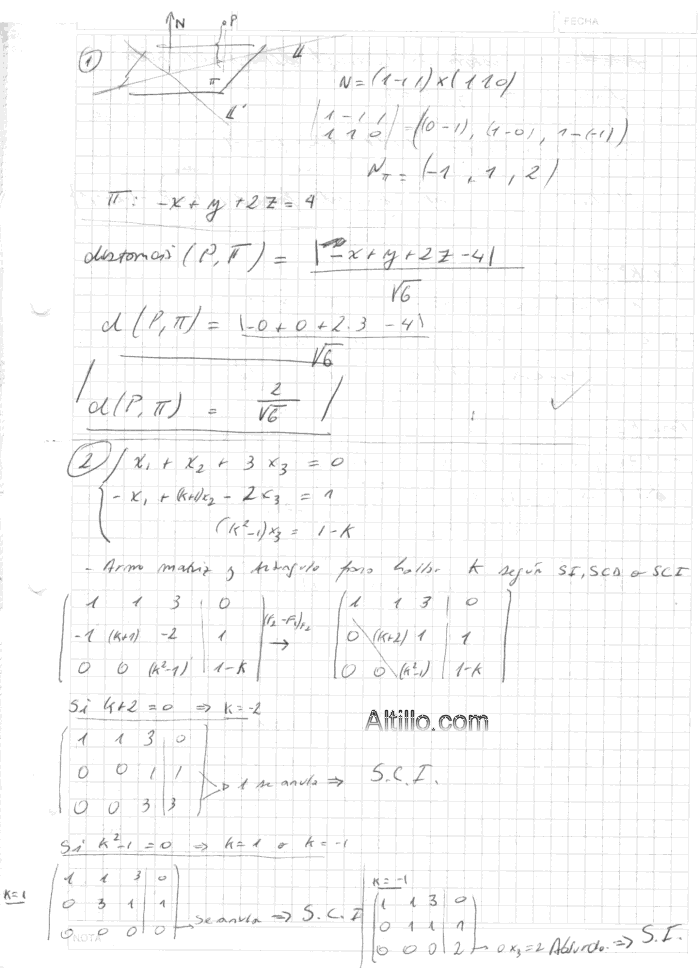 FECHA
N
P
①
π
L
L'
N = (1 -1 1) × (1 1 0)
| 1 -1 1 |
| 1 1 0 | = ((0-1), (1-0), 1-(-1))
Nπ = (-1, 1, 2)
π: -x + y + 2z = 4
distancia (P, π) = |-x + y + 2z - 4|
√6
d (P, π) = |-0 + 0 + 2.3 - 4|
√6
d(P, π) = 2
√6
② x₁ + x₂ + 3 x₃ = 0
- x₁ + (k+1)x₂ - 2x₃ = 1
(k²-1)x₃ = 1-k
- Armo matriz y triángulo para hallar K según SI, SCD o SCI
1 1 3 0 1 1 3 0
-1 (k+1) -2 1 (F₂-F₁)F₂ → 0 (k+2) 1 1
0 0 (k²-1) 1-k 0 0 (k²-1) 1-k
Si k+2 = 0 ⇒ k = -2
Altillo.com
1 1 3 0
0 0 1 1
0 0 3 3 1 se anula ⇒ S.C.I.
Si k²-1 = 0 ⇒ k = 1 o k = -1
K=1
1 1 3 0
0 3 1 1
0 0 0 0 → se anula ⇒ S.C.I
k = -1
1 1 3 0
0 1 1 1
0 0 0 2 → 0x₃=2 Absurdo ⇒ S.I.
NOTA